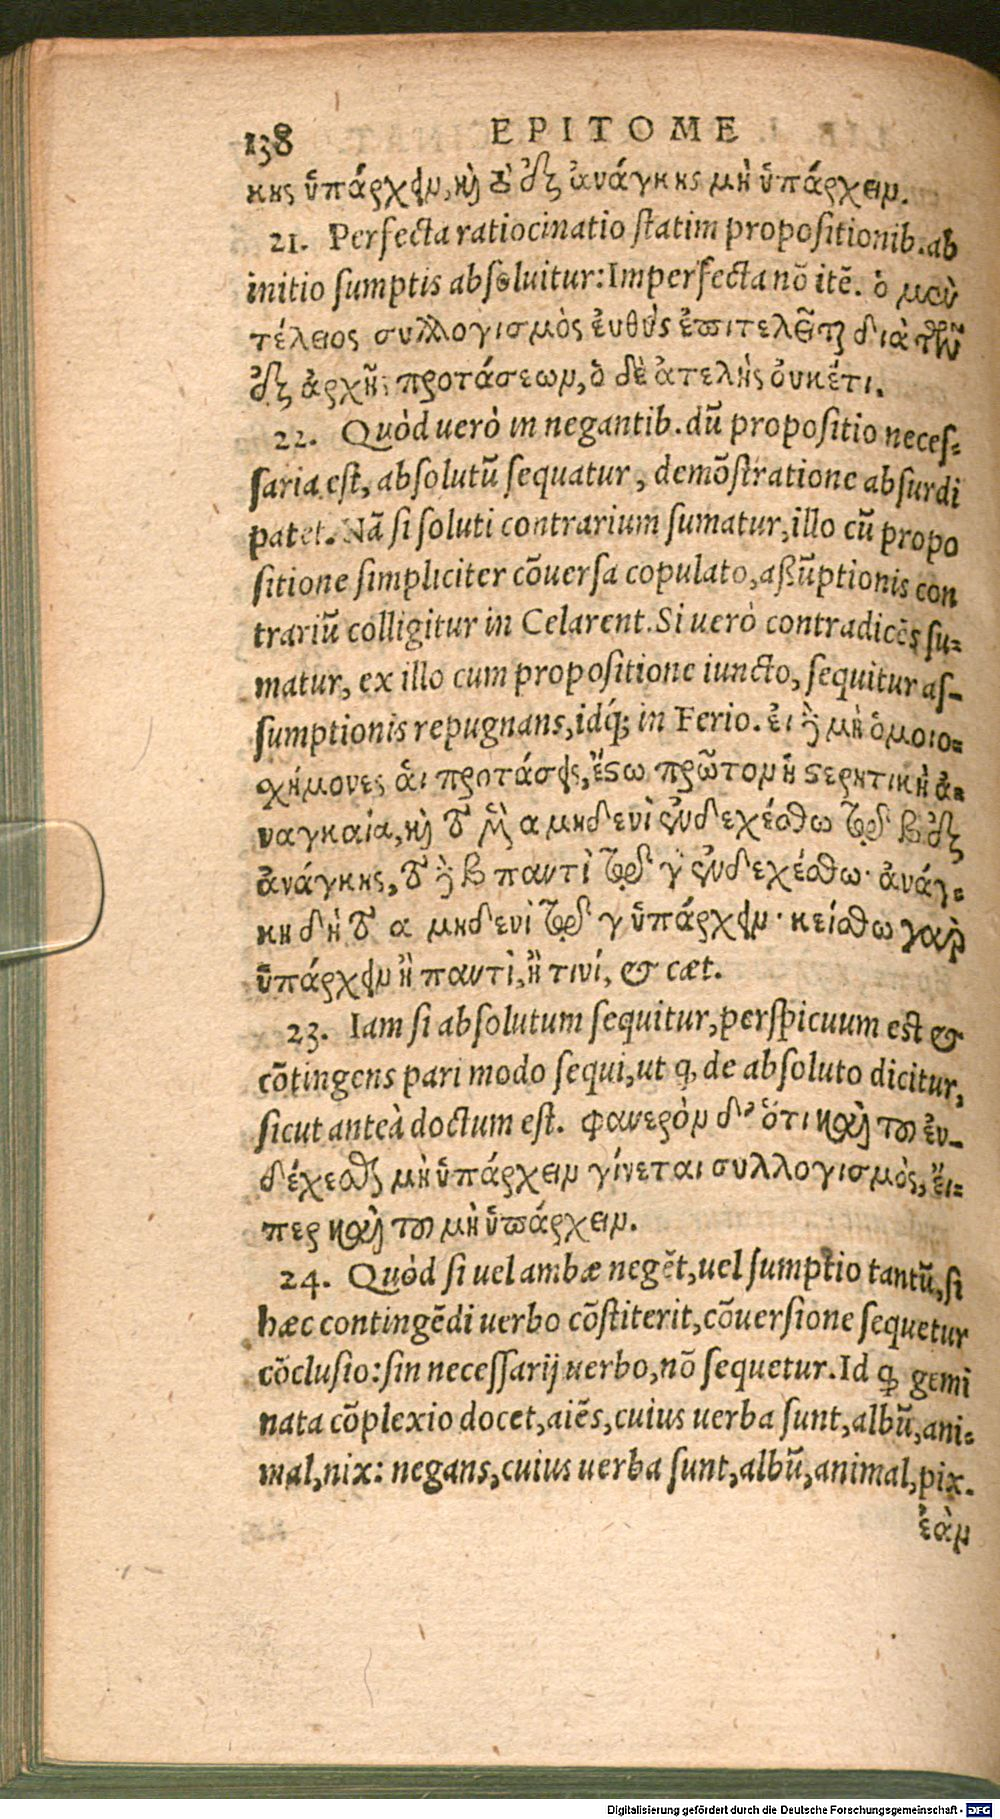 138 EPITOME
κης ὑπάρχειν, καὶ οὐ ἐξ ἀνάγκης μὴ ὑπάρχειν.
21. Perfecta ratiocinatio ſtatim propoſitionib. ab
initio ſumptis abſoluitur: Imperfecta nō itē. ὁ μὲν
τέλειος συλλογισμὸς εὐθὺς ἐπιτελεῖται διὰ τῶν
ἐξ ἀρχῆς προτάσεων, ὁ δὲ ἀτελὴς οὐκέτι.
22. Quòd uerò in negantib. dū propoſitio neceſ-
ſaria eſt, abſolutū ſequatur, demōſtratione abſurdi
patet. Nā ſi ſoluti contrarium ſumatur, illo cū propo
ſitione ſimpliciter cōuerſa copulato, aßūptionis con
trariū colligitur in Celarent. Si uerò contradicēs ſu-
matur, ex illo cum propoſitione iuncto, ſequitur aſ-
ſumptionis repugnans, idq́; in Ferio. εἰ δὲ μὴ ὁμοιο-
σχήμονες αἱ προτάσεις, ἔστω πρῶτον ἡ στερητικὴ ἀ-
ναγκαία, καὶ τὸ μὲν α μηδενὶ ἐνδεχέσθω τῶν β ἐξ
ἀνάγκης, τὸ δὲ β παντὶ τῶν γ ἐνδεχέσθω· ἀνάγ-
κη δὴ τὸ α μηδενὶ τῶν γ ὑπάρχειν· κείσθω γὰρ
ὑπάρχειν ἢ παντὶ, ἢ τινί, & cæt.
23. Iam ſi abſolutum ſequitur, perſpicuum eſt &
cōtingens pari modo ſequi, ut q̨ de abſoluto dicitur,
ſicut anteà doctum eſt. φανερὸν δ' ὅτι καὶ τοῦ ἐν-
δέχεσθαι μὴ ὑπάρχειν γίνεται συλλογισμὸς, εἴ-
περ καὶ τοῦ μὴ ὑπάρχειν.
24. Quòd ſi uel ambæ negēt, uel ſumptio tantū, ſi
hæc contingēdi uerbo cōſtiterit, cōuerſione ſequetur
cōcluſio: ſin neceſſarij uerbo, nō ſequetur. Id q̨ gemi
nata cōplexio docet, aiēs, cuius uerba ſunt, albū, ani-
mal, nix: negans, cuius uerba ſunt, albū, animal, pix.
ἐὰν
Digitalisierung gefördert durch die Deutsche Forschungsgemeinschaft - DFG